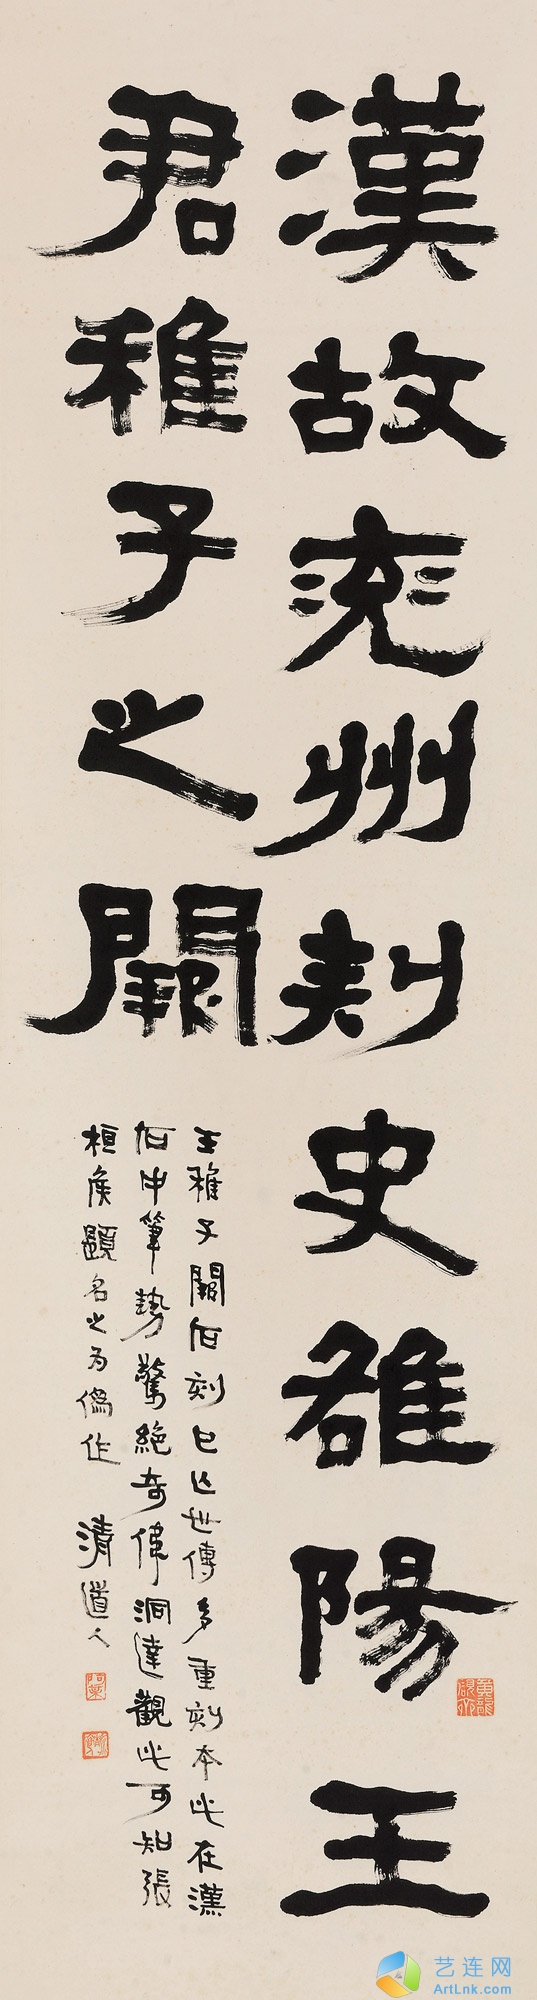 漢故兗州刺史雒陽王
君稚子之闕
王稚子闕石刻已亡世傳多重刻本此在漢
石中筆勢驚絕奇偉洞達觀此可知張
桓侯題名之為偽作 清道人
艺连网
ArtLnk.com